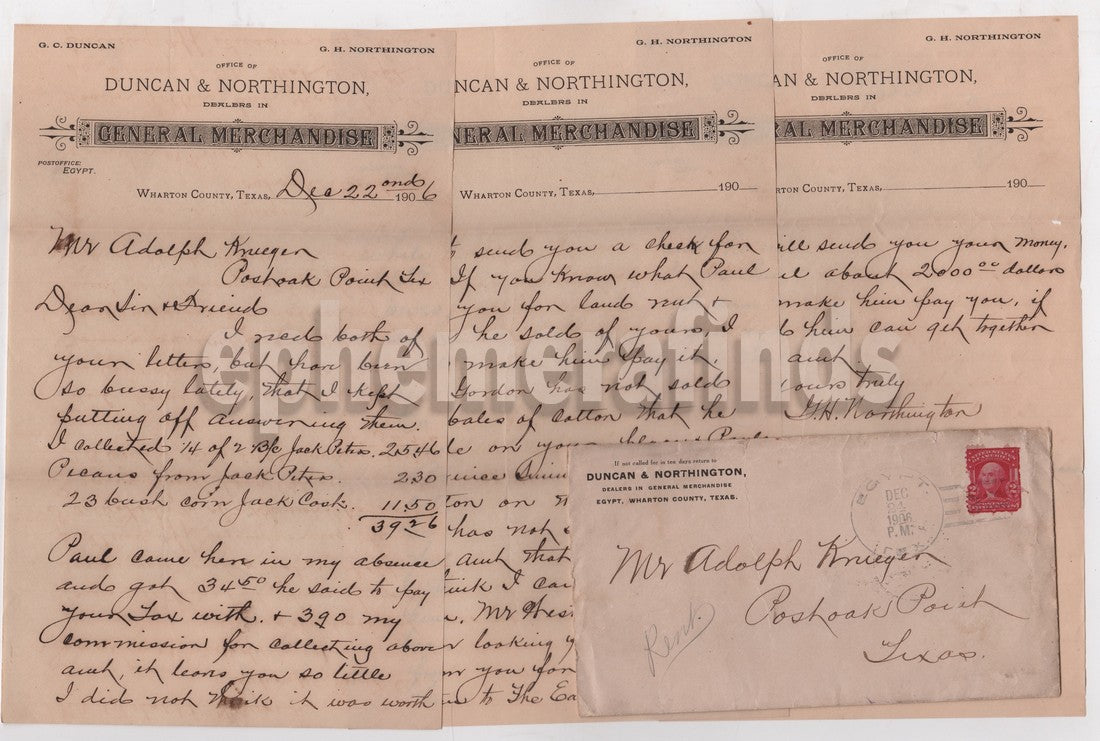 G. C. DUNCAN
G. H. NORTHINGTON
OFFICE OF
DUNCAN & NORTHINGTON,
DEALERS IN
GENERAL MERCHANDISE
POSTOFFICE:
EGYPT.
WHARTON COUNTY, TEXAS, Dec 22 ond 1906
Mr Adolph Krueger
Postoak Point Tex
Dear Sir & Friend
I recd both of
your letters, but have been
so bussy lately, that I kept
putting off answering them.
I collected 1/4 of 2 B/C Jack Peters. 25.46
Pecans from Jack Peters 2.30
23 bush corn Jack Cook. 11.50
39.26
Paul came here in my absence
and got 34.50 he said to pay
your Tax with. & 390 my
commission for collecting above
amt, it leavs you so little
I did not think it was worth
G. H. NORTHINGTON
OFFICE OF
NCAN & NORTHINGTON,
DEALERS IN
NERAL MERCHANDISE
WHARTON COUNTY, TEXAS, 190
send you a check for
If you know what Paul
you for land rent &
he sold of yours, I
make him pay it.
Gordon has not sold
bales of cotton that he
on your
on
has not
amt that
I can
Mr
looking
you for
to The
G. H. NORTHINGTON
OFFICE OF
AN & NORTHINGTON,
DEALERS IN
RAL MERCHANDISE
WHARTON COUNTY, TEXAS, 190
will send you your money.
about 2000.00 dollars
make him pay you, if
him can get together
amt.
Yours truly
G.H. Northington
If not called for in ten days return to
DUNCAN & NORTHINGTON,
DEALERS IN GENERAL MERCHANDISE
EGYPT, WHARTON COUNTY, TEXAS.
EGYPT.
DEC
24
1906
P.M.
TEX.
Mr Adolph Krueger
Postoak Point
Texas.
Rent.
ephemerafinds